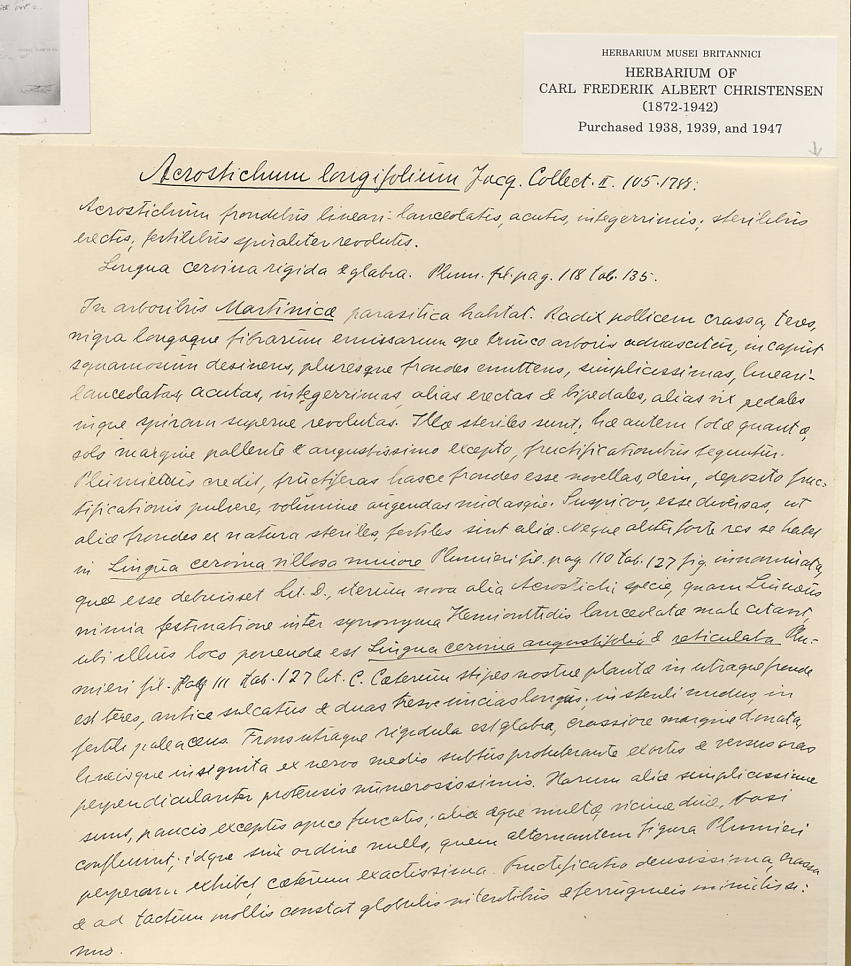 HERBARIUM MUSEI BRITANNICI
HERBARIUM OF
CARL FREDERIK ALBERT CHRISTENSEN
(1872-1942)
Purchased 1938, 1939, and 1947
Acrostichum longifolium Jacq. Collect. II. 105. 1788:
Acrostichum frondibus lineari-lanceolatis, acutis, integerrimis; sterilibus
erectis, fertilibus spiraliter revolutis.
Lingua cervina rigida & glabra. Plum. fil. pag. 118 tab. 135.
In arboribus Martinicæ parasitica habitat. Radix pollicem crassa, teres,
nigra longaque fibrarum emissarum ope trunco arboris adnascitur, in caput
squamosum desinens, pluresque frondes emittens, simplicissimas, lineari-
lanceolatas, acutas, integerrimas, alias erectas & bipedales, alias vix pedales
inque spiram superne revolutas. Illæ steriles sunt, hæ autem totæ quantæ,
solo margine pallente & angustissimo excepto, fructificationibus teguntur.
Plumierius credit, fructiferas hasce frondes esse novellas, dein, deposito fruc-
tificationis pulvere, volumine augendas nudasque. Suspicor, esse diversas, ut
aliæ frondes ex natura steriles, fertiles sint aliæ. Neque aliter forte res se habet
in Lingua cervina villosa minore Plumieri fil. pag. 110 tab. 127 fig. innominata,
quæ esse debuisset Lit. D., iterum nova alia Acrostichi specie, quam Linnæus
nimia festinatione inter synonyma Hemionitidis lanceolatæ male citavit,
ubi illius loco ponenda est Lingua cervina angustifolia & reticulata Plu-
mieri fil. pag 111 tab. 127 lit. C. Cæterum stipes nostræ plantæ in utraque fronde
est teres, antice sulcatus & duas tresve uncias longus; in sterili nudus, in
fertili paleaceus. Frons utraque rigidula est glabra, crassiore margine donata,
lineisque insignita ex nervo medio subtus protuberante exortis & versus oras
perpendiculariter protensis numerosissimis. Harum aliæ simplicissimæ
sunt, paucis exceptis apice furcatis; aliæ æque multæ, vicinæ duæ, basi
confluunt; idque sine ordine nullo, quem alternantem figura Plumieri
perperam exhibet, cæterum exactissima. Fructificatio densissima, crassa
& ad tactum mollis constat globulis nitentibus & ferrugineis minutissi:
mis.